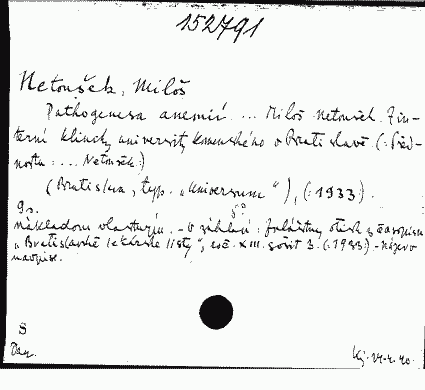 152791
Netoušek, Miloš
Pathogenesa anemií ... Miloš Netoušek. Z in-
terní kliniky university Komenského v Bratislavě. (: Před-
nosta: ... Netoušek:)
(Bratislava, typ. „Universum“), (:1933).
8°
9 s.
nákladem vlastním. - V záhlaví: Zvláštny otisk z časopisu
„Bratislavské lekárske listy“, roč. XIII. sešit 3. (:1933) -
S